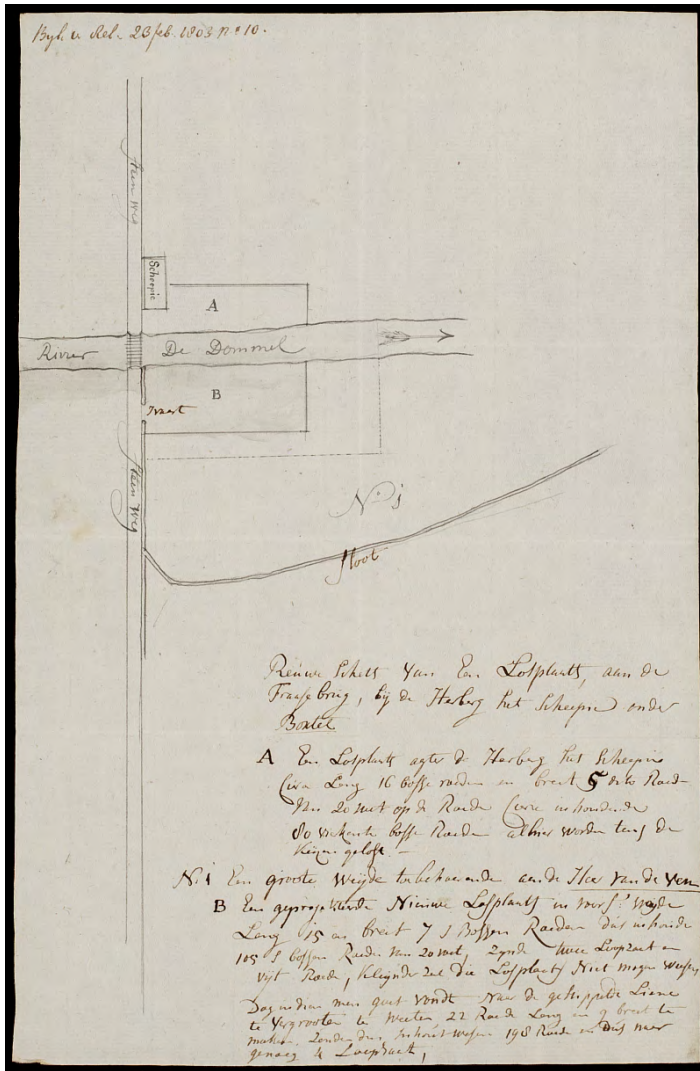 Byl. v. Rel. 23 feb. 1803 N:o 10.
Steen Weg
Scheepie
A
Rivier De Dommel
B
Steen Weg
N:o 1
Sloot
Schets Van Een Losplaats, aan de
brug, bij de Herberg het Scheepie onder
Boxtel
A Een Losplaats agter de Herberg het Scheepie
Circa Lang 16 bosse roeden en breet 5 dito Roed
Van 20 voet op de Roede Circa inhoudende
80 vierkante bosse Roeden alhier werden
gelost
N:o 1 Een groote Weijde toebehoorende aan de Heer van de Ven
B Een geprojecteerde Nieuwe Losplaats in voors: weijde
Lang 15 en breet 7 Bossen Roeden dus inhoude
105 bossen Roeden van 20 voet, Zynde twee Loopzaet en
vijf Roede, Kleijnder zal die Losplaats Niet mogen Weesen
Dog indien men goet vondt Naar de gestippelde Liene
te Vergrooten te Weeten 22 Roede Lang en 9 breet te
maken, Zoude dies inhout Wesen 198 Roede en dus
genoeg 4 Loopzaet,